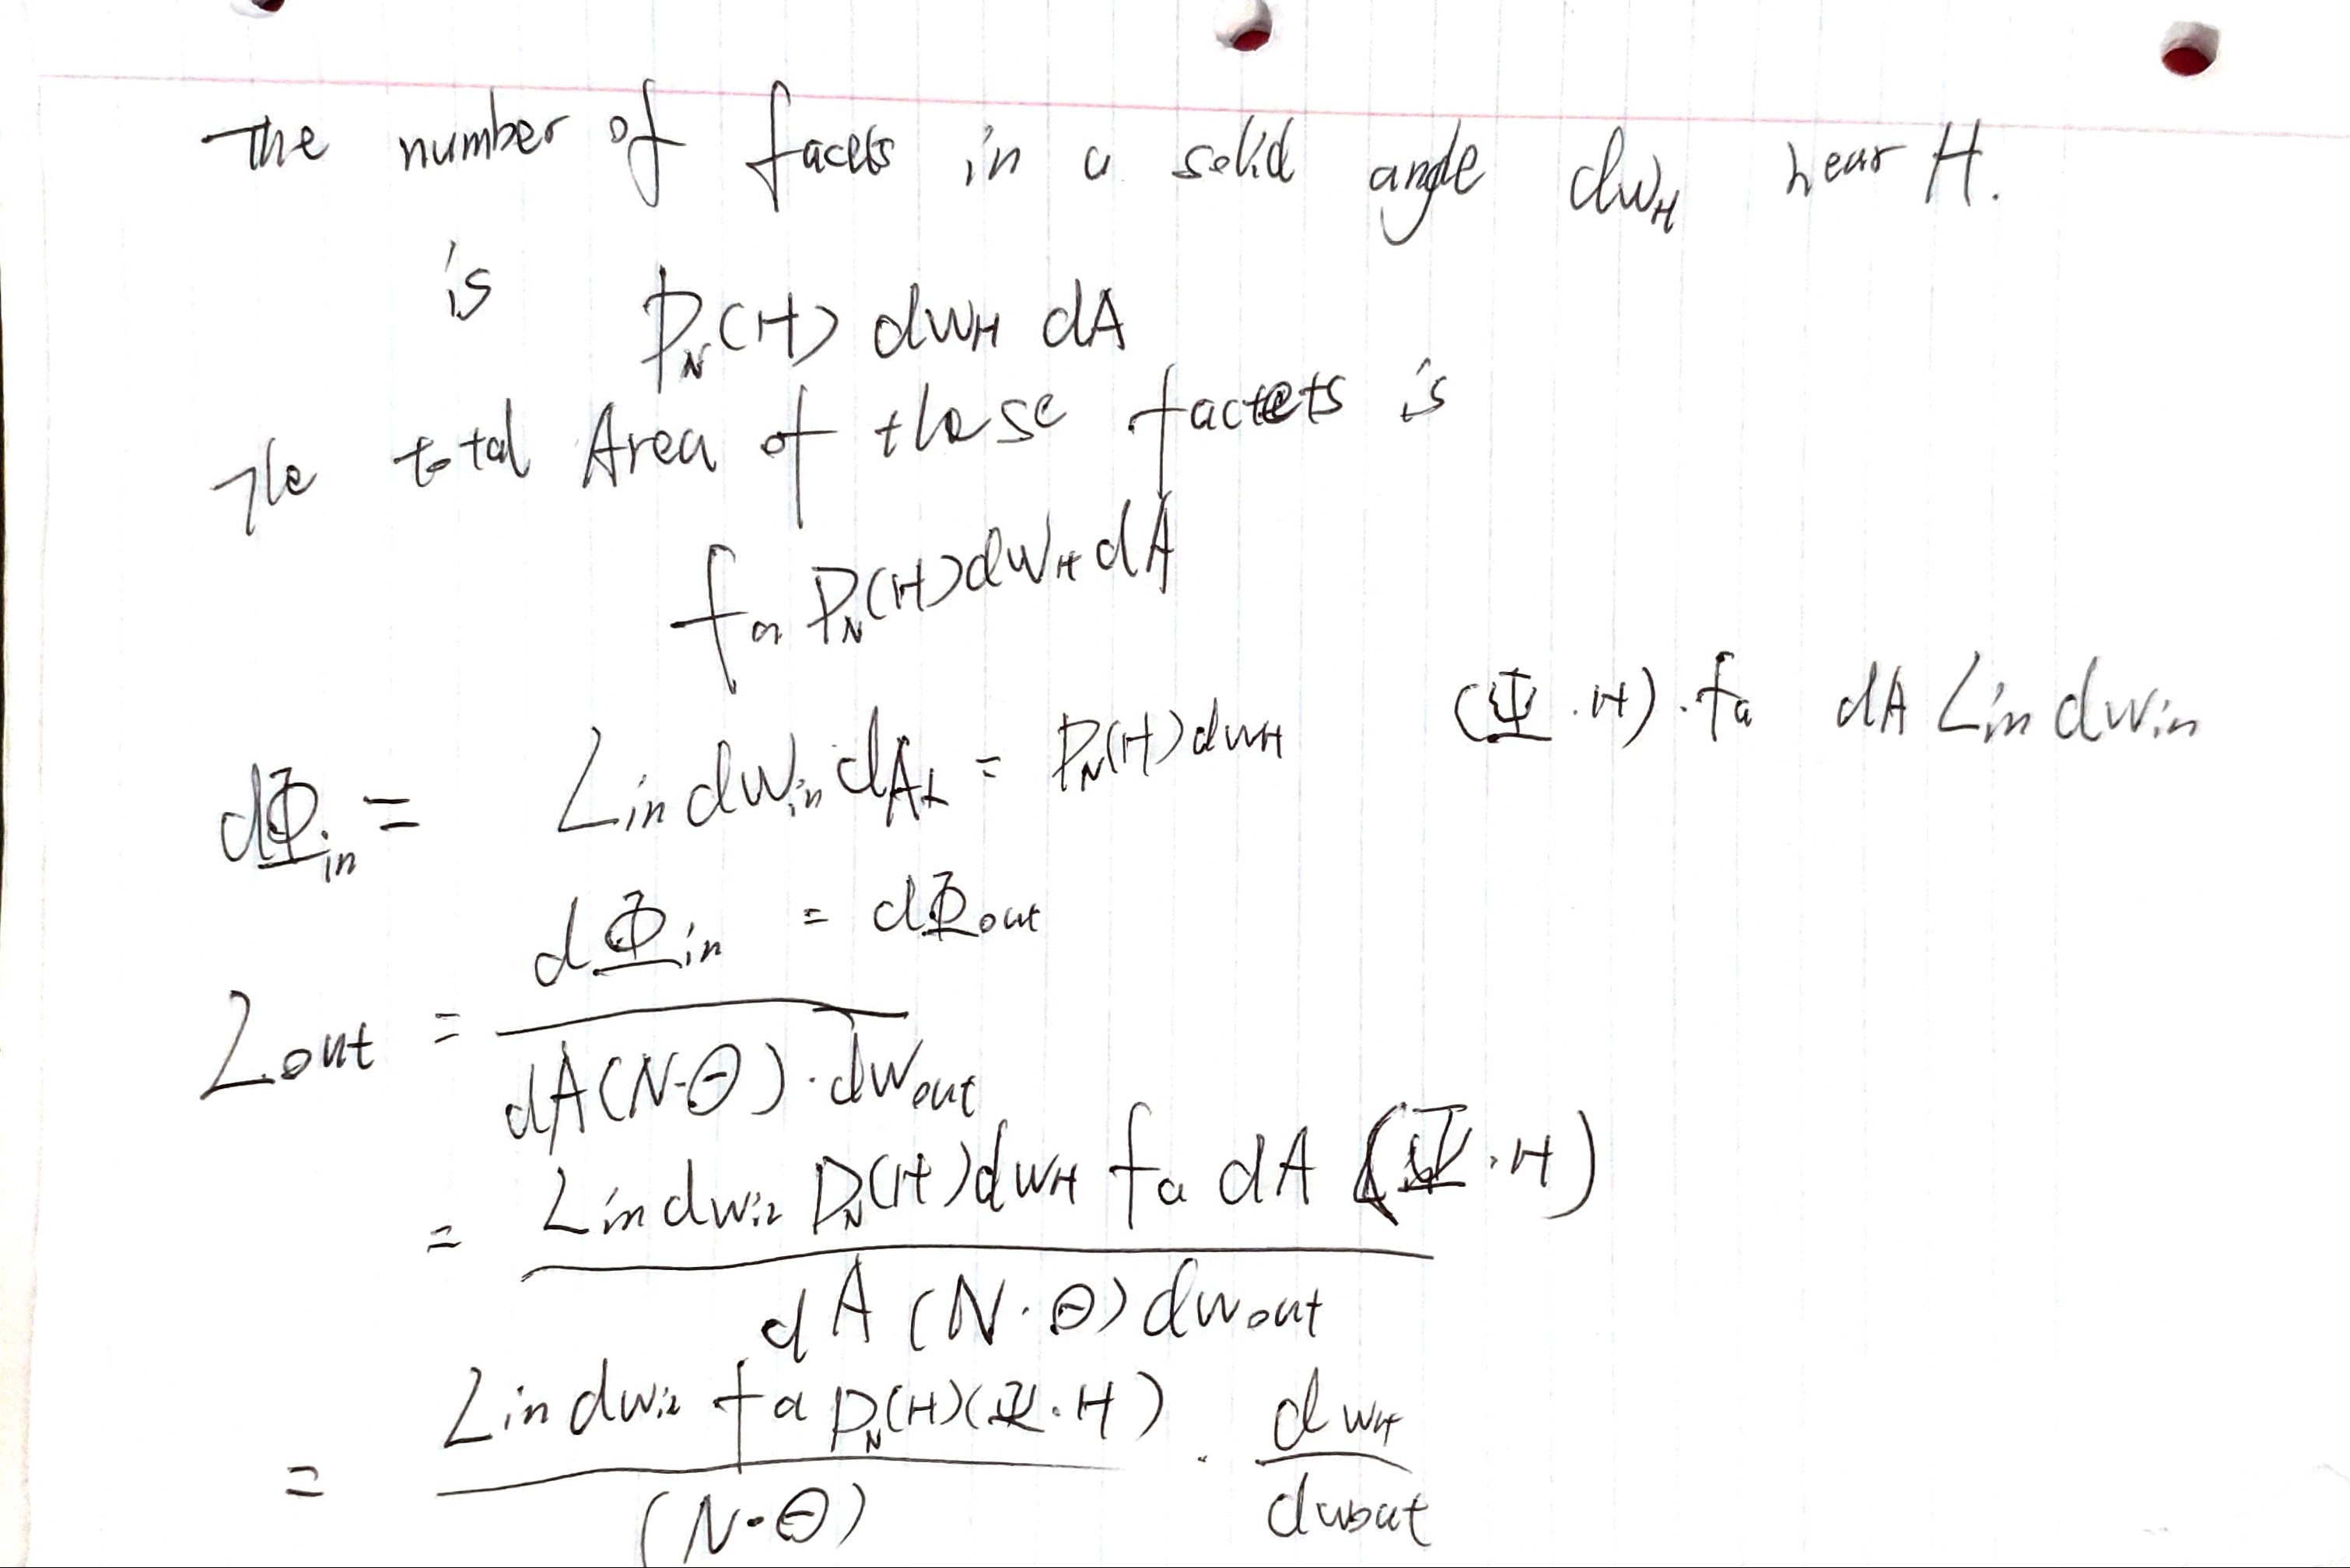 The number of facets in a solid angle dωH near H.
is P_N(H) dωH dA
The total Area of those factets is
fa P_N(H) dωH dA
dΦin = Lin dωin dA⊥ = P_N(H) dωH (Ψ·H)·fa dA Lin dωin
dΦin = dΦout
Lout = dΦin / dA(N·Θ)·dωout
= Lin dωin P_N(H) dωH fa dA (Ψ·H) / dA (N·Θ) dωout
= Lin dωin fa P_N(H)(Ψ·H) / (N·Θ) · dωH / dωout